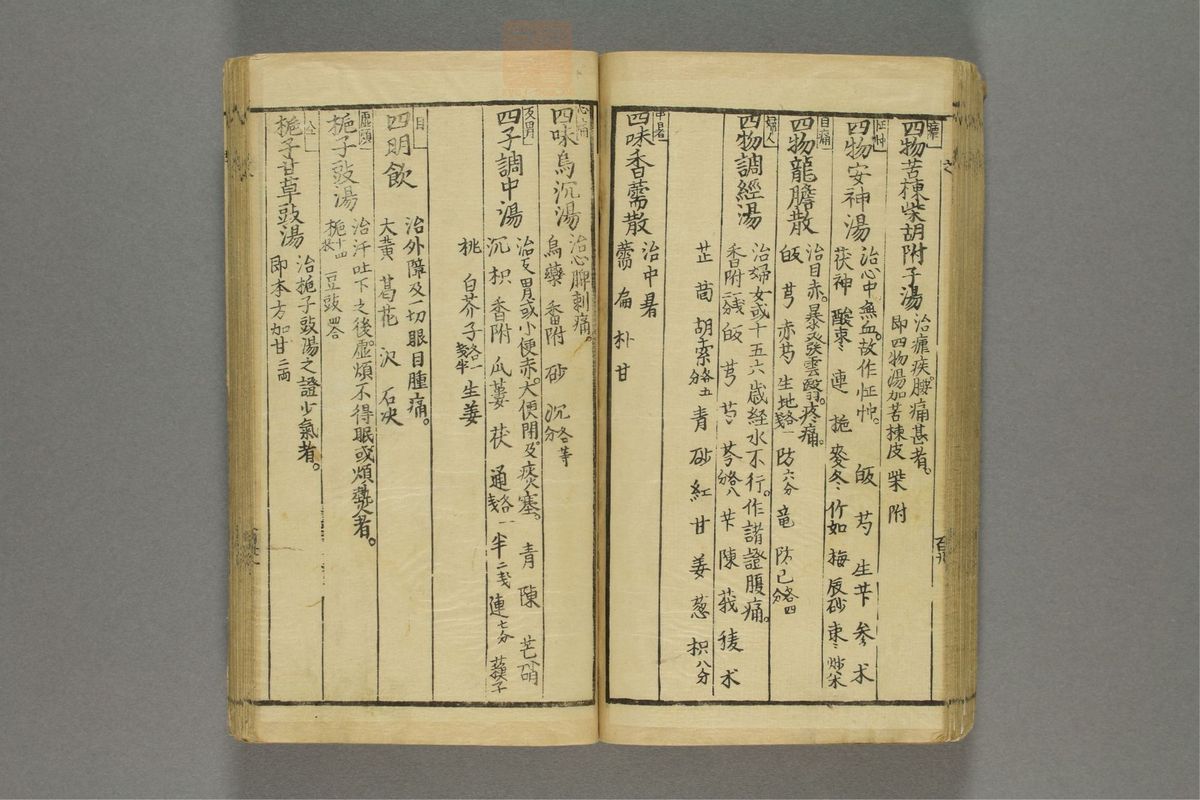 四物苦楝柴胡附子湯
治疝疾腳痛甚者。
即四物湯加苦楝皮 柴 附
怔忡
四物安神湯
治心中無血。故作怔忡。 皈 芍 生 芐 參 朮
茯神 酸棗 連 梔 麥冬 竹如 梅 辰砂 棗 炒米
目痛
四物龍膽散
治目赤。暴發雲翳。疼痛。
皈 芎 赤芍 生地各一戔 防六分 竜 防已各四分
婦人
四物調經湯
治婦女或十五六歳経水不行。作諸證腹痛。
香附二戔二分 皈 芎 芍 芩各八分 芐 陳 莪 稜 朮
芷 茴 胡索各五分 青 砂 紅 甘 姜 葱 枳八分
中暑
四味香薷散
治中暑
薷 扁 朴 甘
心痛
四味烏沉湯
治心脾刺痛。
烏藥 香附 砂 沉各等分
反胃
四子調中湯
治反胃或小便赤。大便閉。及痰塞。 青 陳 芒硝
沉 枳 香附 瓜蔞 茯 通各一戔 半二戔 連七分 蘇子
桃 白芥子各一戔半 生姜
目
四明飲
治外障及一切眼目腫痛。
大黄 葛花 沢 石决
虛煩
梔子豉湯
治汗吐下之後。虛煩不得眠或煩熱者。
梔十四枚 豆豉四合
仝
梔子甘草豉湯
治梔子豉湯之證少氣者。
即本方加甘二両